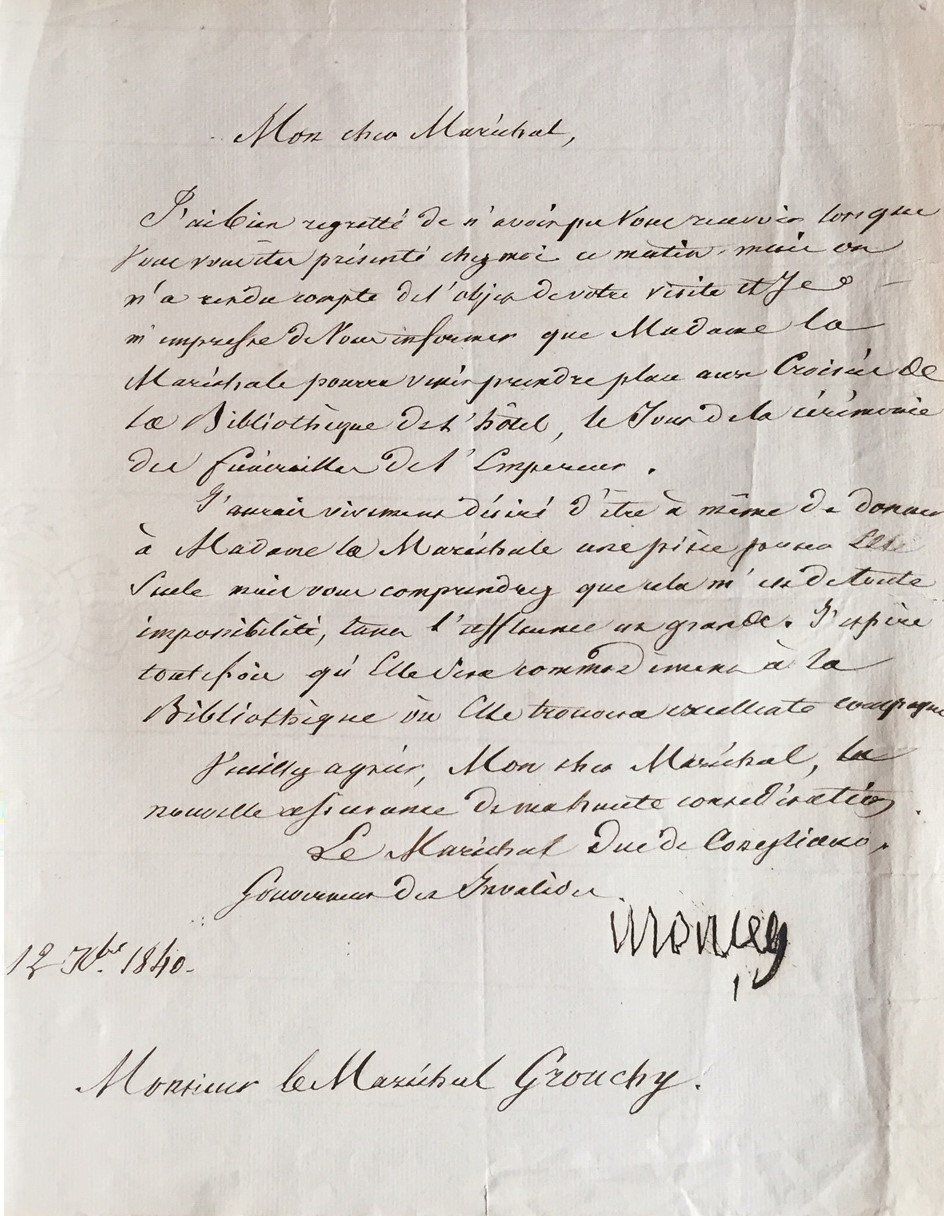 Mon cher Maréchal,
J'ai bien regretté de n'avoir pu vous recevoir lorsque
vous vous êtes présenté chez moi ce matin, mais on
m'a rendu compte de l'objet de votre visite et Je
m'empresse de vous informer que Madame la
Maréchale pourra venir prendre place aux Croisées de
la Bibliothèque de l'hôtel, le Jour de la cérémonie
des funérailles de l'Empereur.
J'aurais vivement désiré d'être à même de donner
à Madame la Maréchale une pièce pour Elle
Seule mais vous comprendrez que cela m'est de toute
impossibilité, tant l'affluence est grande. J'espère
toutefois qu'Elle sera commodément à la
Bibliothèque où Elle trouvera excellente compagnie
Veuillez agréer, Mon cher Maréchal, la
nouvelle assurance de ma haute considération.
Le Maréchal Duc de Conegliano,
Gouverneur des Invalides
Moncey
12 Xbre 1840.
Monsieur le Maréchal Grouchy.